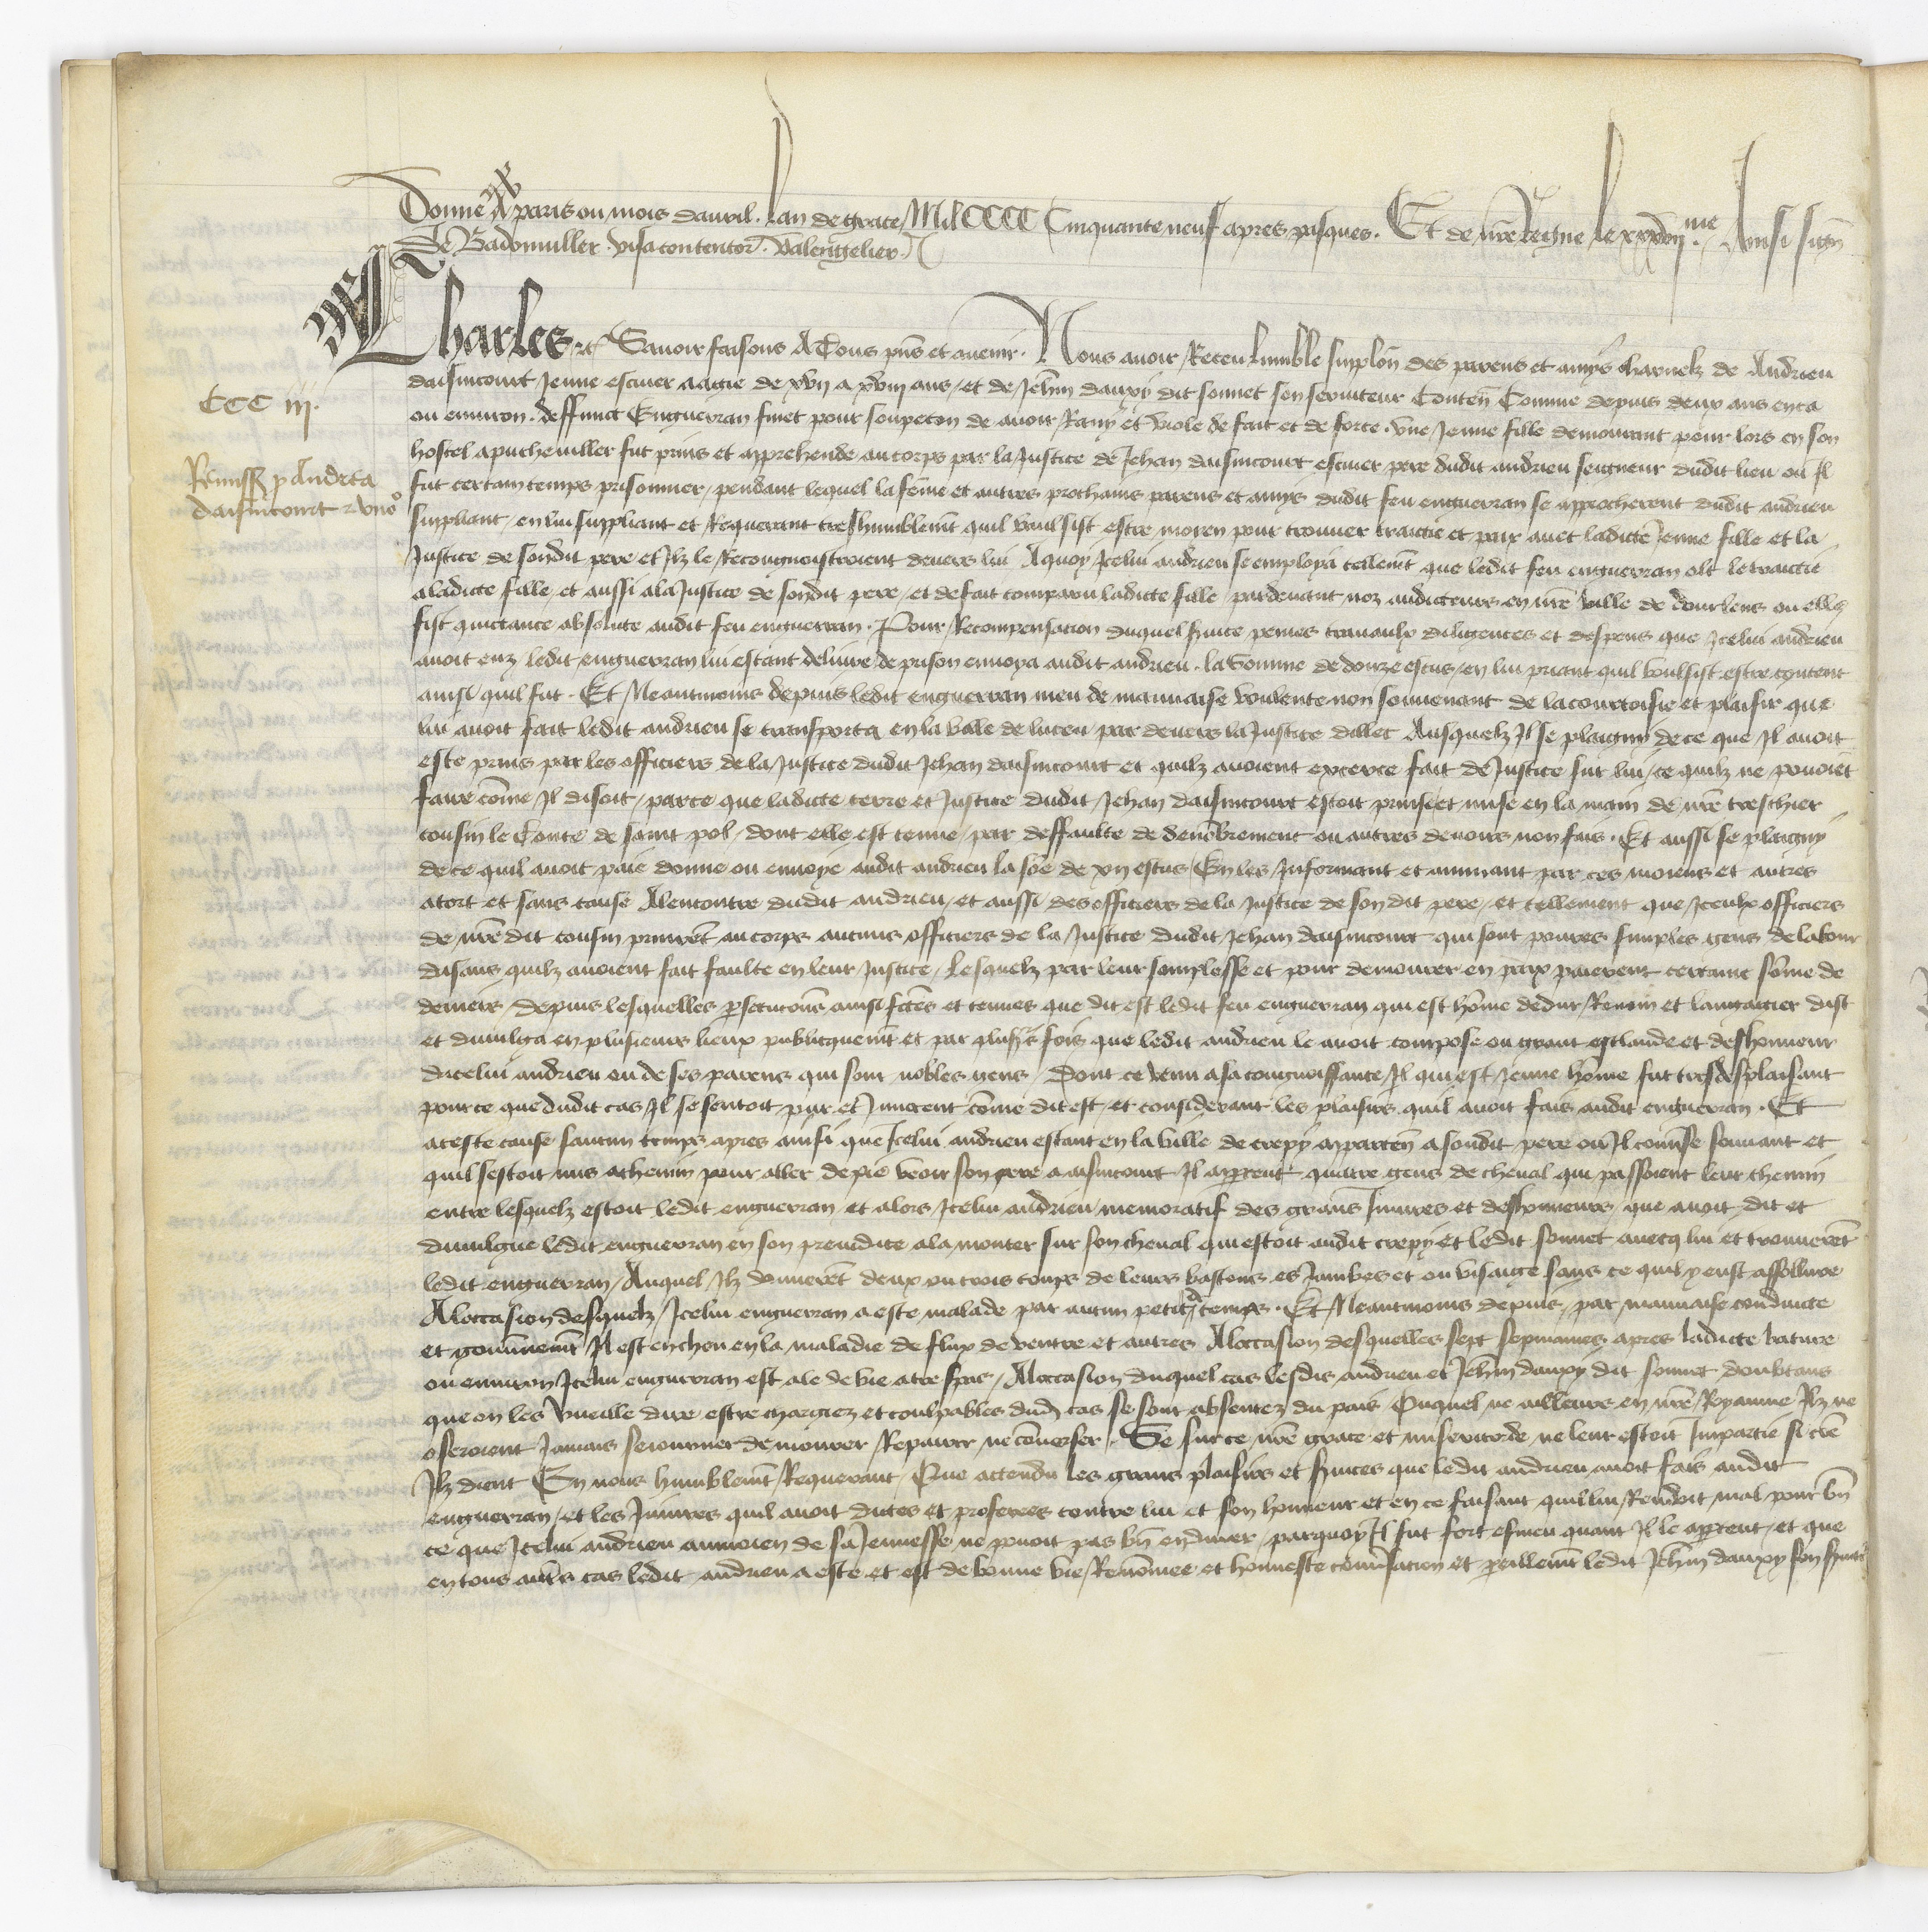 Donne A paris ou mois davril. Lan de grace Mil CCCC Cinquante neuf apres pasques. Et de nre Regne le xxxvii me. Ainsi sign
De Badomuiller. visa contentor. Valengelier.
Charles &c Savoir faisons A Tous pns et avenir. Nous avoir Receu lumble supplon des parens et amys charnelz de Andrieu
CCC iij.
daisincourt Jeune escuier aagie de xvij a xviij ans, et de Jehin dauxy dit sonnet son serviteur Conten Comme depuis deux ans enca
ou environ. deffunct Enguerran finet pour soupecon de avoir Ravy et viole de fait et de force. une Jeune fille demourant pour lors en son
hostel apucheviller fut prins et apprehende au corps par la Justice de Jehan daisincourt escuier pere dudit andrieu seigneur dudit lieu ou Il
Remiss p Andrea
daisincourt
fut certain temps prisonnier, pendant lequel la feme et autres prochains parens et amys dudit feu enguerran se approcherent dudit andrieu
supliant, en lui suppliant et Requerant treshumblemt quil voulsist estre moien pour trouver traictie et paix avec ladicte Jeune fille et la
Justice de sondit pere et Ilz le Recongnoistroient devers lui Aquoy Icelui andrieu se employa tellemt que ledit feu enguerran olt le traictie
a ladicte fille, et aussi ala Justice de sondit pere, et de fait comparu ladicte fille pardevant noz auditeurs en nre ville de dourlens ou elle
fist quictance absolute audit feu enguerran. Pour Recompensacion duquel svice peines travaulx diligences et despens que Icelui andrieu
avoit euz ledit enguerran lui estant delivre de prison envoya audit andrieu. la somme de douze escus, en lui priant quil voulsist estre content
ainsi quil fut. Et Neantmoins depuis ledit enguerran meu de mauvaise voulente non souvenant de la courtoisie et plaisir que
lui avoit fait ledit andrieu se transporta en la vale de luceu par devers la Justice dillec Ausquelz Il se plaigny de ce que Il avoit
este prins par les officiers de la Justice dudit Jehan daisincourt et quilz avoient excerce fait de Justice sur lui, ce quilz ne pouoiet
faire come Il disoit, parce que ladicte terre et Justice dudit Jehan daisincourt estoit prinse et mise en la main de nre treschier
cousin le Conte de saint pol, dont elle est tenue, par deffaulte de denobrement ou autres devoirs non fais. Et aussi se plaigny
de ce quil avoit paie donne ou envoye audit andrieu la soe de xij escus, En les Informant et animant par ces moiens et autres
atort et sans cause Alencontre dudit andrieu, et aussi des officiers de la Justice de son dit pere, et tellement que Iceulx officiers
de nre dit cousin prinret au corps aucuns officiers de la Justice dudit Jehan daisincourt qui sont povres simples gens de labour
disans quilz avoient fait faulte en leur Justice, Lesquelz par leur simplesse et pour demourer en paix paierent certaine some de
deniers, depuis lesquelles psecucions ainsi fctes et tenues que dit est ledit feu enguerran qui est home de dur Renom et langaigier dist
et divulga en plusieurs lieux publicquemt et par plusrs fois que ledit andrieu le avoit compose ou grant esclande et deshonneur
dicelui andrieu ou de ses parens qui sont nobles gens, Dont ce venu a sa congnoissance, Il qui est Jeune home fut tresdesplaisant
pour ce que dudit cas Il se sentoit pur et Innocent come dit est, et considerant les plaisirs quil avoit fais audit enguerran. Et
a ceste cause saucun temps apres ainsi que Icelui andrieu estant en la ville de crepy apparten a sondit pere ou Il comse souvant et
quil sestoit mis achemin pour aller de pie veoir son pere a aisincourt Il apperceut quatre gens de cheval qui passoient leur chemin
entre lesquelz estoit ledit enguerran et alors Icelui andrieu memoratif des grans Iniures et deshonneurs que avoit dit et
divulgue ledit enguerran en son preiudice ala monter sur son cheval qui estoit audit crepy et ledit sonnet avecq lui et trouveret
ledit enguerran, Auquel Ilz donneret deux ou trois coups de leurs bastons es Jambes et ou visaige sans ce quil y eust affollure
Aloccasion desquelz Icelui enguerran a este malade par aucun petit de temps. Et Neantmoins depuis, par mauvaise conduicte
et gouvnemt Il est encheu en la maladie de flux de ventre et autres Aloccasion desquelles sept sepmaines apres ladicte bature
ou environ Icelui enguerran est ale de vie a trespas, Aloccasion duquel cas lesdis andrieu et Jehin dauxy dit sonnet doubtans
que on les vueille dire estre chargiez et coulpables dud cas se sont absentez du pais Ouquel ne ailleurs en nre Royaume Ilz ne
oseroient Jamais seiourner demourer Repairer ne converser. Se sur ce nre grace et misericorde ne leur estoit Impartie si cõe
Ilz dient En nous humblemt Requerant, Que attendu les grans plaisirs et svices que ledit andrieu avoit fais audit
enguerran, et les Iniures quil avoit dictes et proferees contre lui et son honneur et en ce faisant quil lui Rendoit mal pour bn
ce que Icelui andrieu aumoien de sa Jeunesse ne pouoit pas bn endurer, parquoy Il fut fort esmeu quant Il le apperceut, et que
en tous autrs cas ledit andrieu a este et est de bonne vie Renomee et honneste convsacion et peillemt ledit Jehin dauxy son svite